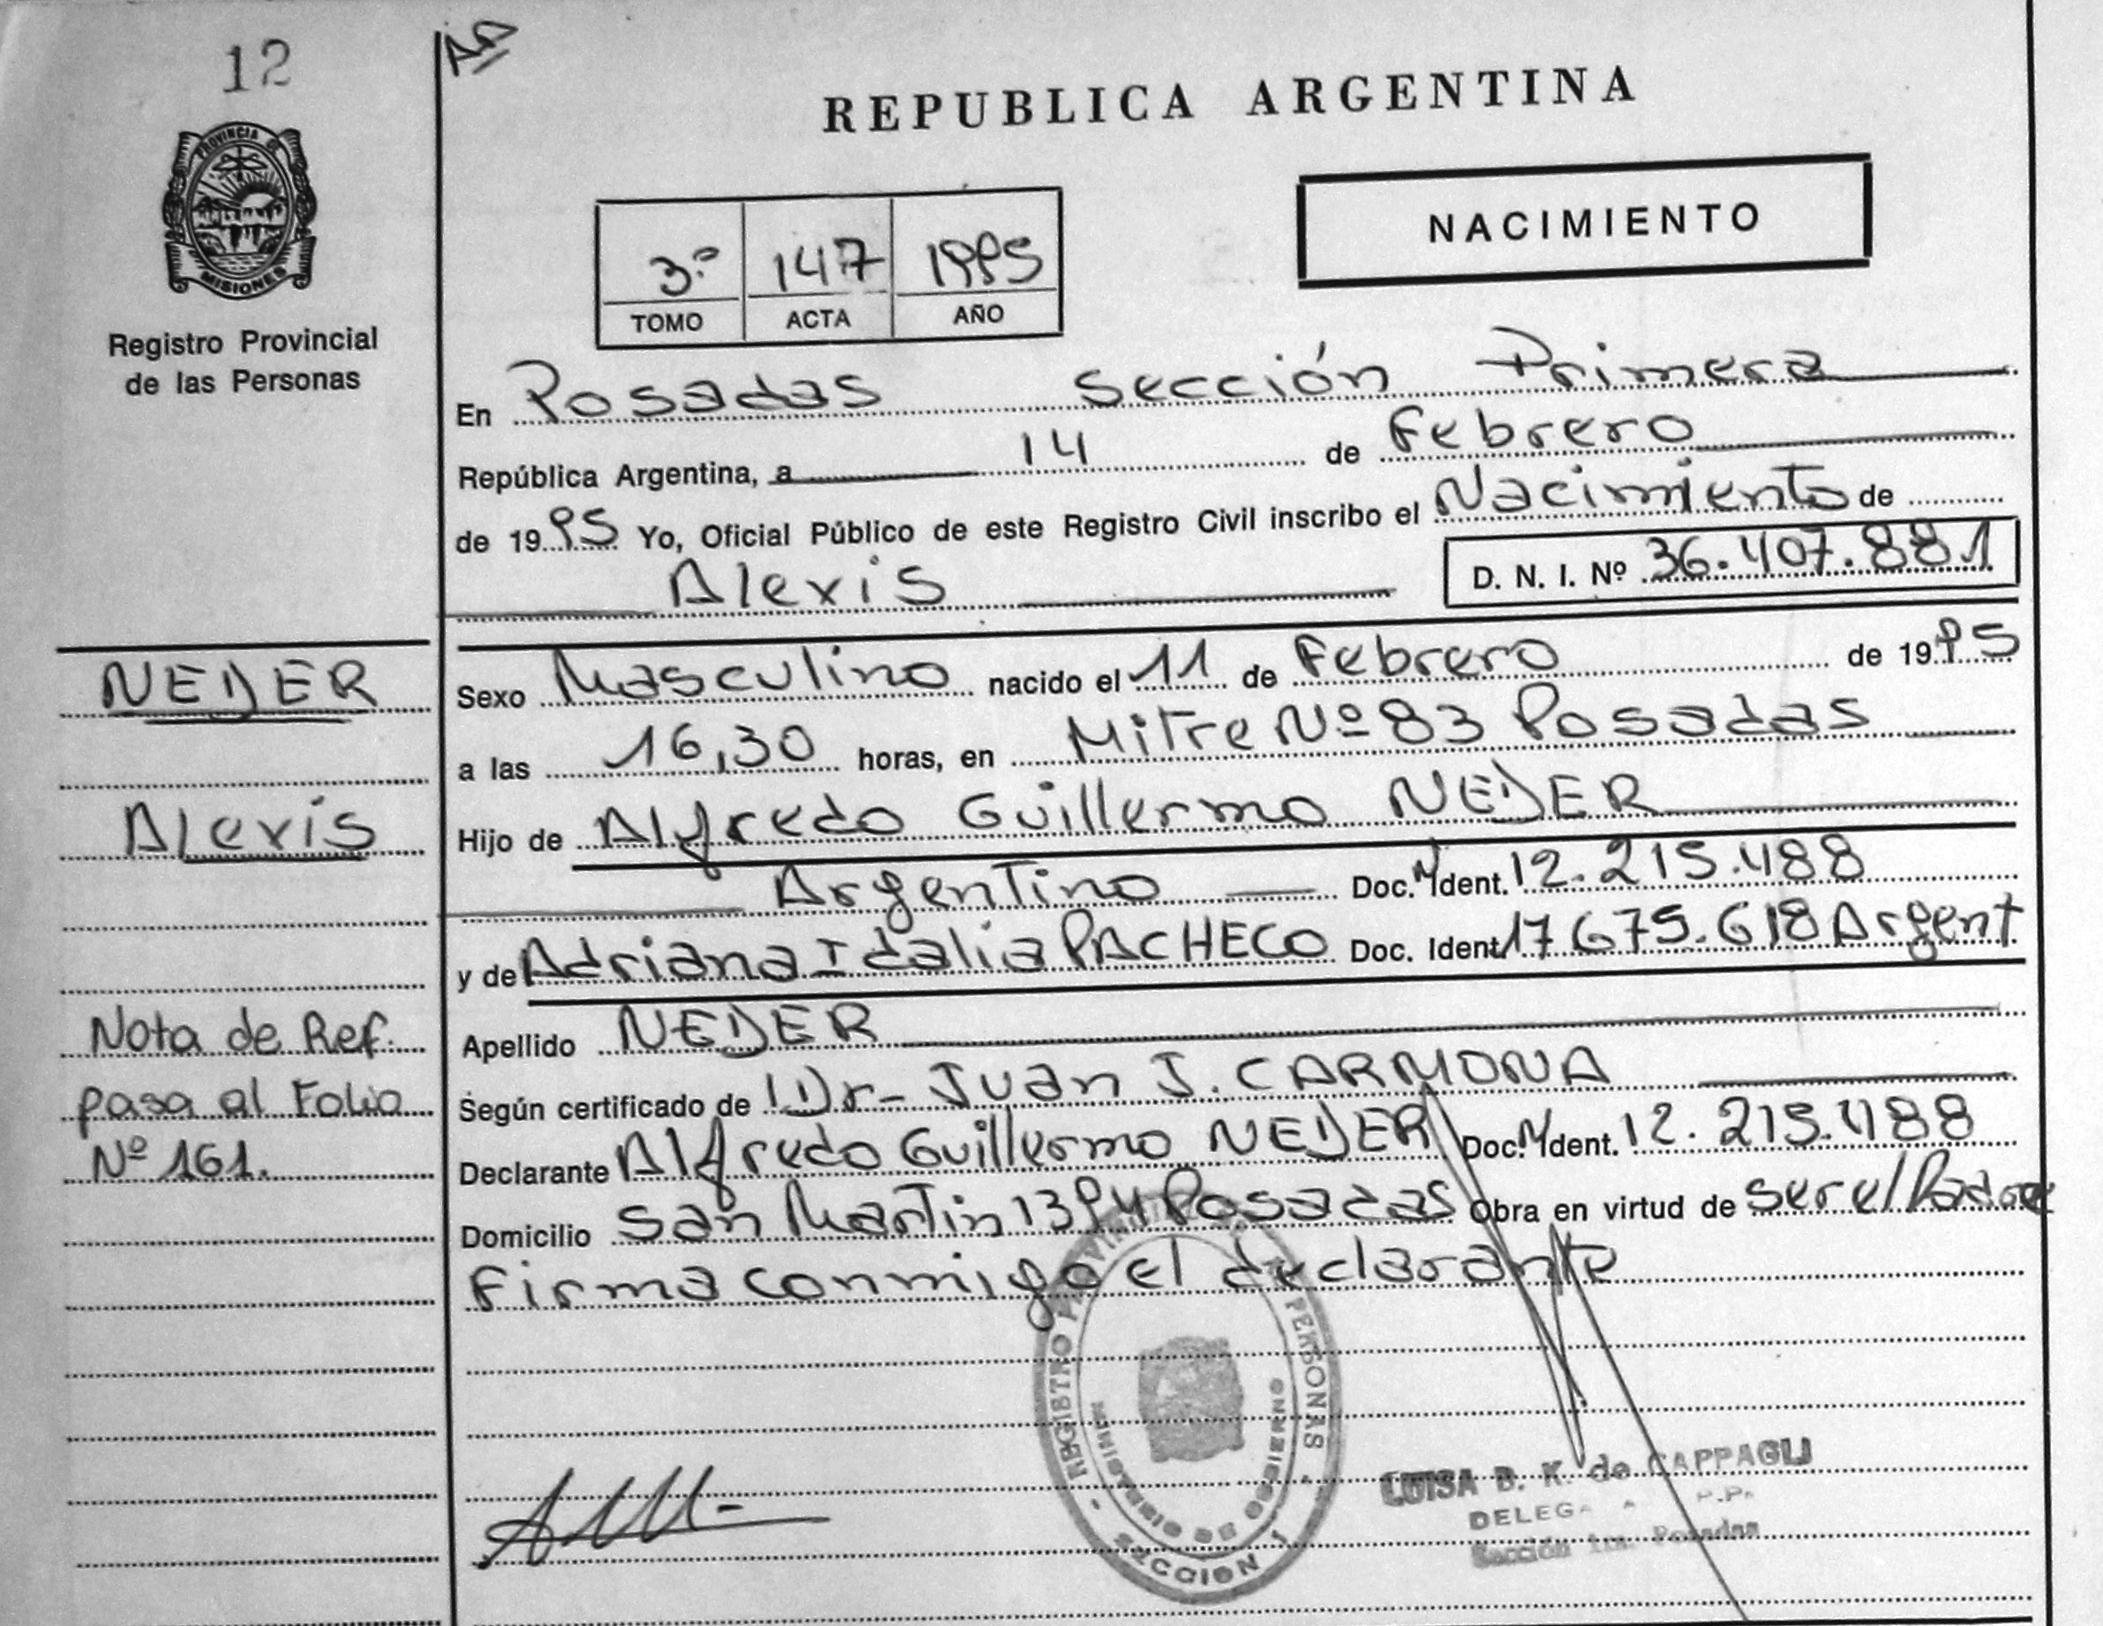 12
PROVINCIA DE
MISIONES
Registro Provincial
de las Personas
REPUBLICA ARGENTINA
NACIMIENTO
3º 147 1995
TOMO ACTA AÑO
En Posadas Sección Primera
República Argentina, a 14 de Febrero
de 1995 Yo, Oficial Público de este Registro Civil inscribo el Nacimiento de
Alexis D. N. I. Nº 36.407.881
NEDER
Sexo Masculino nacido el 11 de Febrero de 1995
a las 16,30 horas, en Mitre Nº 83 Posadas
Alexis
Hijo de Alfredo Guillermo NEDER
Argentino Doc. Ident. 12.215.488
y de Adriana Idalia PACHECO Doc. Ident 17.675.618 Argent
Nota de Ref.
pasa al Folio
Nº 161.
Apellido NEDER
Según certificado de Dr- Juan J. CARMONA
Declarante Alfredo Guillermo NEDER Doc. Ident. 12.215.488
Domicilio San Martin 1394 Posadas Obra en virtud de ser el Padre
Firma conmigo el declarante
REGISTRO PROVINCIAL DE LAS PERSONAS
MINISTERIO DE GOBIERNO
SECCION 1
LUISA B. K. de CAPPAGLI
Sección 1ra. Posadas